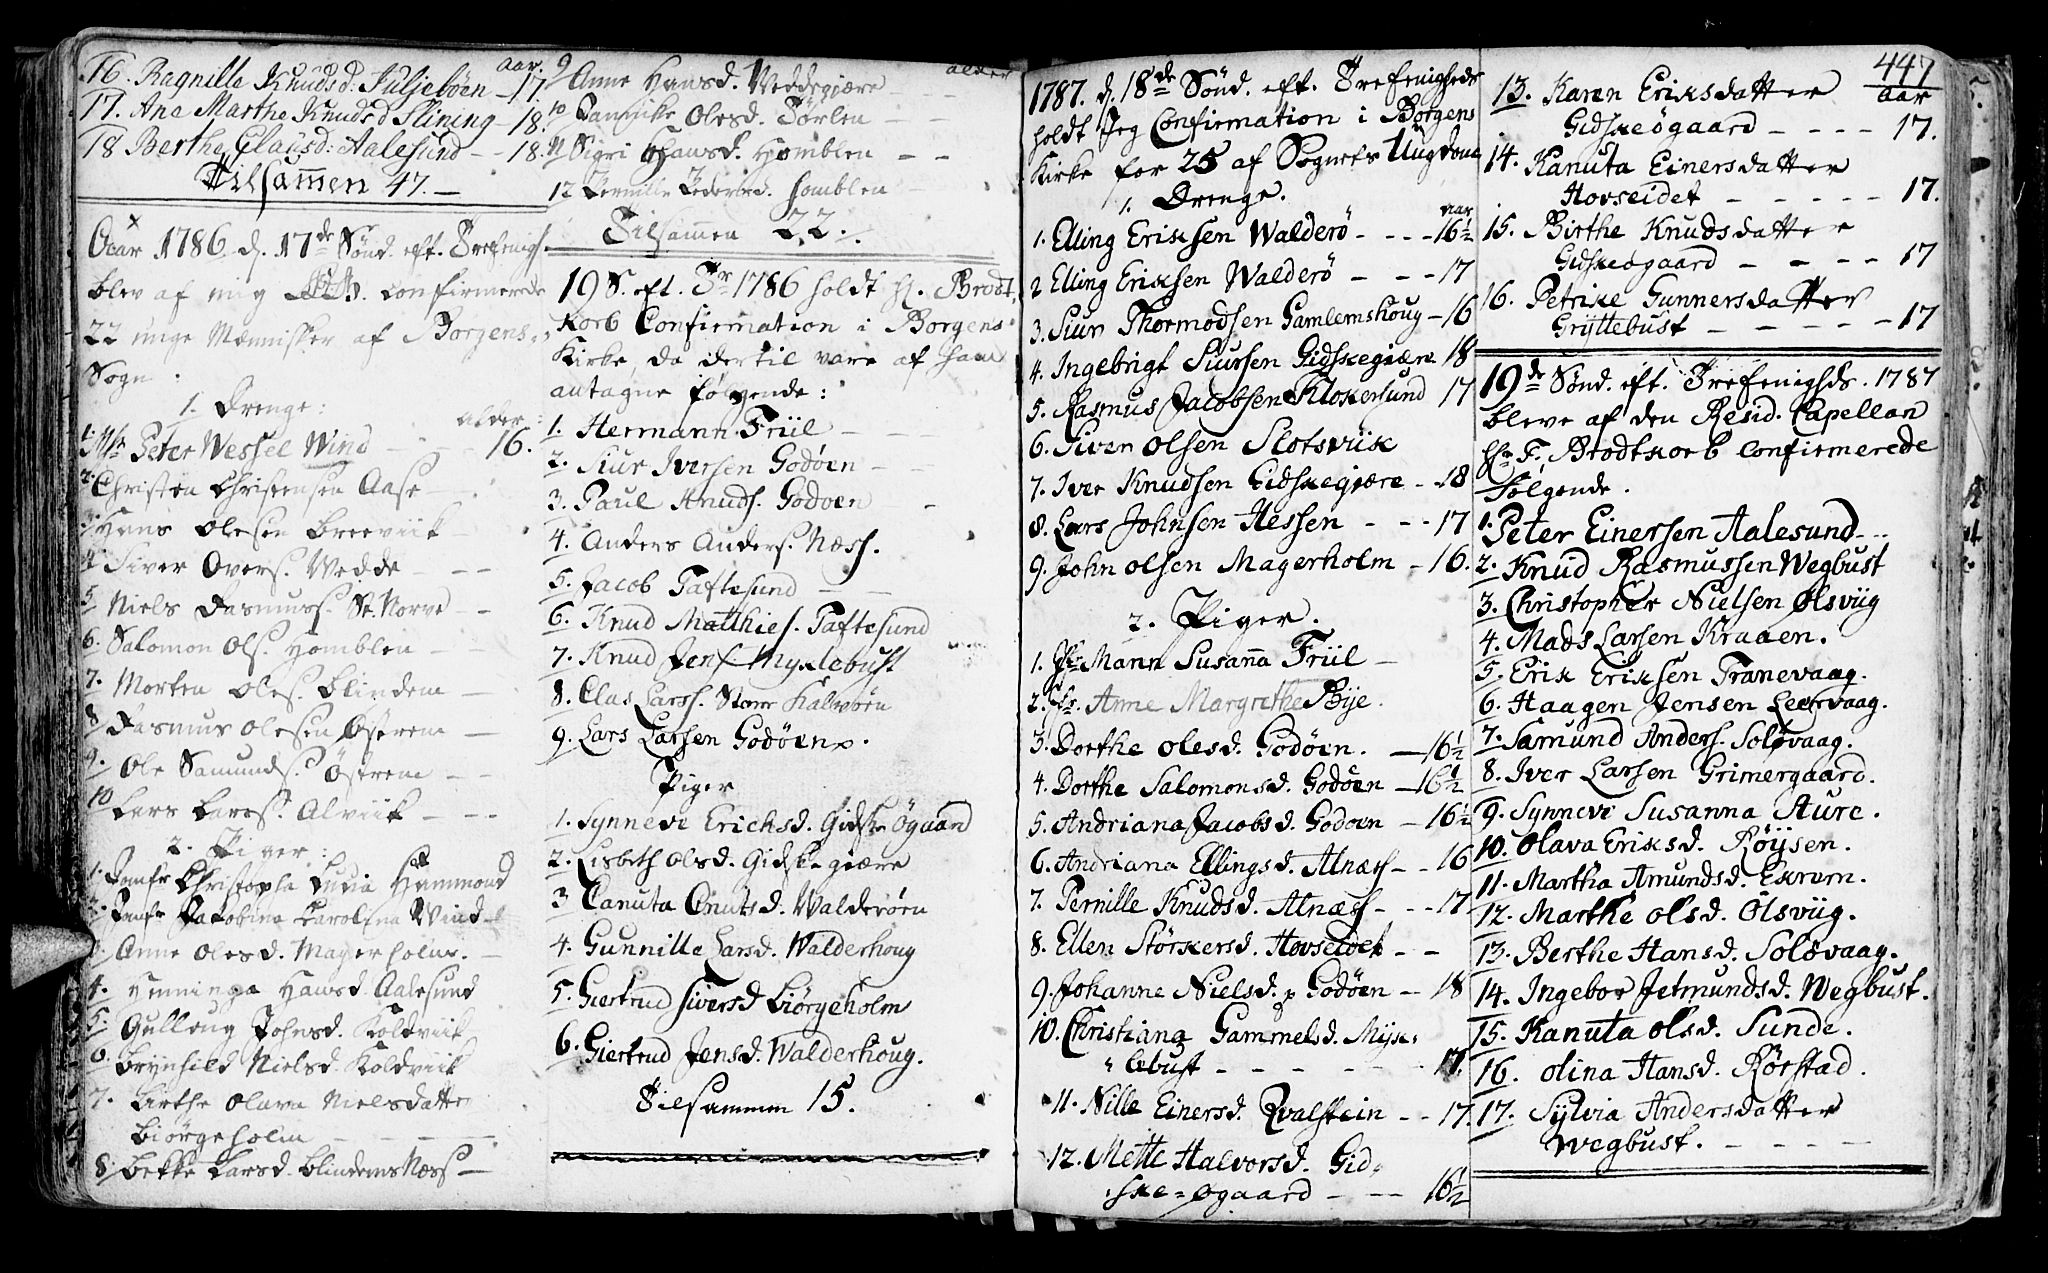 Aar.
16. Ragnille Knudsd. Fuljebøen - 17
17. Ane Marthe Knudsd Slining - 18.
18 Berthe Clausd: Aalesund - - 18.
Tilsammen 47. -
Aar 1786 d. 17de Sønd. eft. Trefenigh.
blev af mig confirmerede
22 unge Mennisker af Borgens
Sogn :
1. Drenge:
alder:
1. Peter Wessel Wind - - - 16.
2. Christen Christensen Aase -
3. Hans Olesen Breeviik -
4 Siver Overs. Wedde - - -
5 Niels Rasmuss. St. Norve - -
6. Salomon Ols. Homblen - -
7. Morten Oles. Blindem -
8 Rasmus Olesen Østrem -
9. Ole Samunds. Østrem - -
10 Lars Larss. Alviik - - -
2. Piger:
1. Jomfr Christopha Lucia Hammond
2. Jomfr Jacobina Carolina Wind
3. Anne Olesd. Magerholm. -
4. Henninga Hansd. Aalesund
5. Gulloug Johnsd. Koldviik
6. Brynhild Nielsd. Koldviik
7. Birthe Olava Nielsdatter
Biørgeholm - - - -
8. Bekke Larsd. Blindems Næss -
alder
9 Anne Hansd. Weddegjære - -
10 Jannike Olesd. Tørlen - -
11 Sigri Hansd. Homblen - -
12 Pernille Pedersd. Homblen -
Tilsammen 22.
19 S. eft. Tr 1786 holdt H. Brodt
korb Confirmation i Borgens
Kirke, da dertil vare af ham
antagne følgende:
1. Hermann Friil - -
2. Siur Iversen Godøen - -
3. Paul Knuds. Godøen - -
4. Anders Anders. Næss.
5. Jacob Taftesund - -
6. Knud Matthies. Taftesund
7. Knud Jens. Myklebust
8. Clas Larss. Store Kalvøen
9. Lars Larsen Godøen.
Piger
1. Synneve Erichsd. Gidske Øgaard
2. Lisbeth Olsd. Gidskegiære
3 Canuta Cnutsd. Walderøen
4. Gunnilla Larsd. Walderhoug
5. Giertrud Siversd Biørgeholm
6. Giertrud Jensd. Walderhoug.
Tilsammen 15.
1787. d. 18de Sønd. eft. Trefenigheds
holdt Jeg Confirmation i Borgens
Kirke for 25 af Sognets Ungdom
1. Drenge.
aar
1. Elling Eriksen Walderö - - - 16½
2 Elling Eriksen Walderö - - - 17
3. Siur Thormodsen Gamlemshoug - 16
4. Ingebrigt Siursen Gidskegiære 18
5. Rasmus Jacobsen Klokersund 17
6. Siver Olsen Slotsviik
7. Iver Knudsen Gidskegiære - 18
8. Lars Johnsen Hessen - - - 17
9. John Olsen Magerholm - 16.
2. Piger.
1. Mann Susanna Friil -
2. Anne Margrethe Bye.
3. Dorthe Olesd. Godøen. - 16½
4. Dorthe Salomonsd. Godøen - 16½
5. Andriana Jacobsd. Godoen - 16½
6. Andriana Ellingsd. Alnæss - - 16
7. Pernille Knudsd. Alnæss - - - 17
8. Ellen Størkersd. Hovseidet - -
9. Johanne Nielsd. Godöen - 18
10. Christiana Gammelsd. Myk-
lebust - - - - - - 17.
11. Nille Einersd. Qvalstein - - 17.
12. Mette Halvorsd. Gid-
ske-øgaard - - - 16½
447
aar
13. Karen Eriksdatter
Gidskeøgaard - - - - 17.
14. Kanuta Einersdatter
Hovseidet - - - - - 17.
15. Birthe Knudsdatter
Gidskeøgaard - - - - 17
16. Petrike Gunnersdatter
Gryttebust - - - - - 17
19de Sønd. eft. Trefenighds. 1787
bleve af den Resid. Capellan
Hr F. Brodtkorb confirmerede
følgende.
1. Peter Einersen Aalesund - - -
2. Knud Rasmussen Wegbust
3. Christopher Nielsen Ølsviig
4. Mads Larsen Kraaen.
5. Erik Eriksen Tranevaag.
6. Haagen Jensen Leervaag.
7. Samund Anders. Solövaag.
8. Iver Larsen Grimergaard.
9. Synneve Susanna Aure.
10. Olava Eriksd. Røysen.
11. Martha Amundsd. Exrem.
12. Marthe Olsd. Olsviig.
13. Berthe Hansd. Solövaag.
14. Ingebor Jetmundsd. Wegbust.
15. Kanuta Olsd. Sunde.
16. Olina Hansd. Rørstad.
17. Sylvia Andersdatter
Wegbust. - - - - -